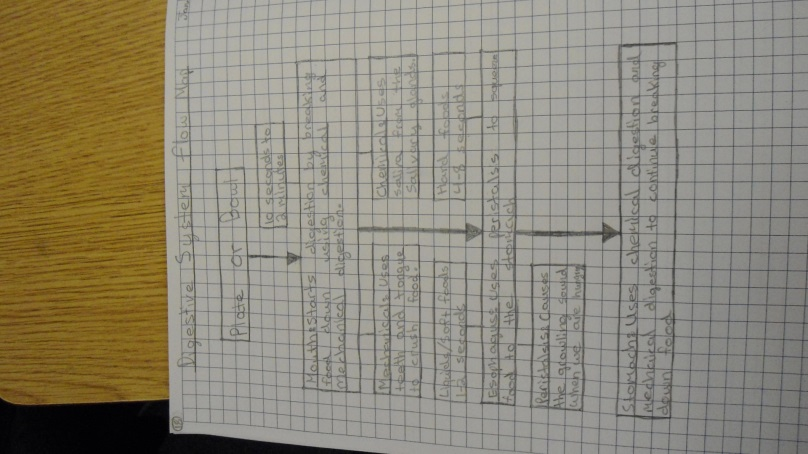 Digestive System Flow Map
Plate or bowl
10 seconds to
2 minutes
Mouth: Starts digestion by breaking
food down using chemical and
mechanical digestion.
Mechanical: Uses
teeth and tongue
to crush food.
Chemical: Uses
saliva from the
Salivary glands.
Liquids/Soft foods
1-2 seconds
Hard foods
4-8 seconds
Esophagus: Uses peristalsis to squeeze
food to the stomach
Peristalsis: Causes
the growling sound
when we are hungry
Stomach: Uses chemical digestion and
mechanical digestion to continue breaking
down food